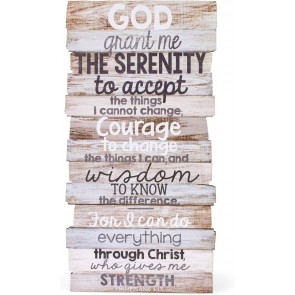 GOD
grant me
THE SERENITY
to accept
the things
I cannot change,
Courage
to change
the things I can, and
wisdom
TO KNOW
the difference.
For I can do
everything
through Christ,
who gives me
STRENGTH